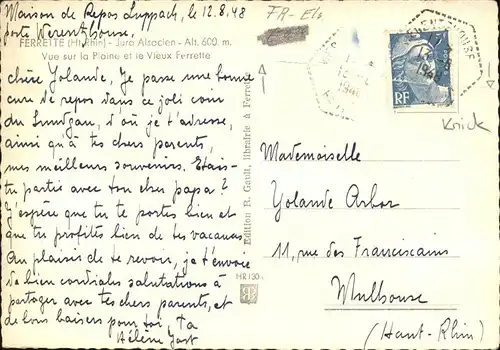 Maison de Repos Luppach, le 12.8.48
poste Werentzhouse.
FERRETTE (Ht-Rhin) - Jura Alsacien - Alt. 600. m.
Vue sur la Plaine et le Vieux Ferrette
chère Yolande, Je passe une bonne
cure de repos dans ce joli coin
du Sundgau, d'où je t'adresse,
ainsi qu'à tes chers parents,
mes meilleurs souvenirs. Etais-
tu partie avec ton cher papa?
J'espère que tu te portes bien et
que tu profites bien de tes vacances.
Au plaisir de te revoir, je t'envoie
de bien cordiales salutations à
partager avec tes chers parents, et
de bons baisers pour toi, ta
Hélène Jost
Edition R. Gault, librairie à Ferrette
HR/30
FR-Els
RF
Knick
Mademoiselle
Yolande Arbor
11, rue des Franciscains
Mulhouse
(Haut-Rhin)